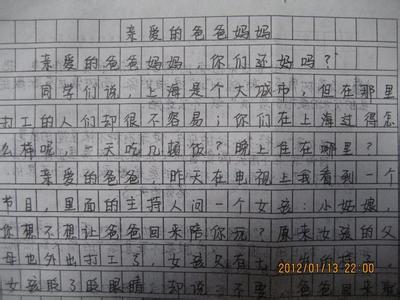 亲爱的爸爸妈妈
亲爱的爸爸妈妈,你们还妈吗?
同学们说,上海是个大城市,但在那里
打工的人们却很不容易;你们在上海过得怎
么样呢,一天吃几顿饭?晚上住在哪里?
亲爱的爸爸,昨天在电视上我看到一个
节目,里面的主持人问一个女孩:小姑娘,
您想不想让爸爸回来陪你玩?原来女孩的父
母也外出打工了,女孩只有七
女孩眨了眨眼睛,却说:不要
2012/01/13 22:00